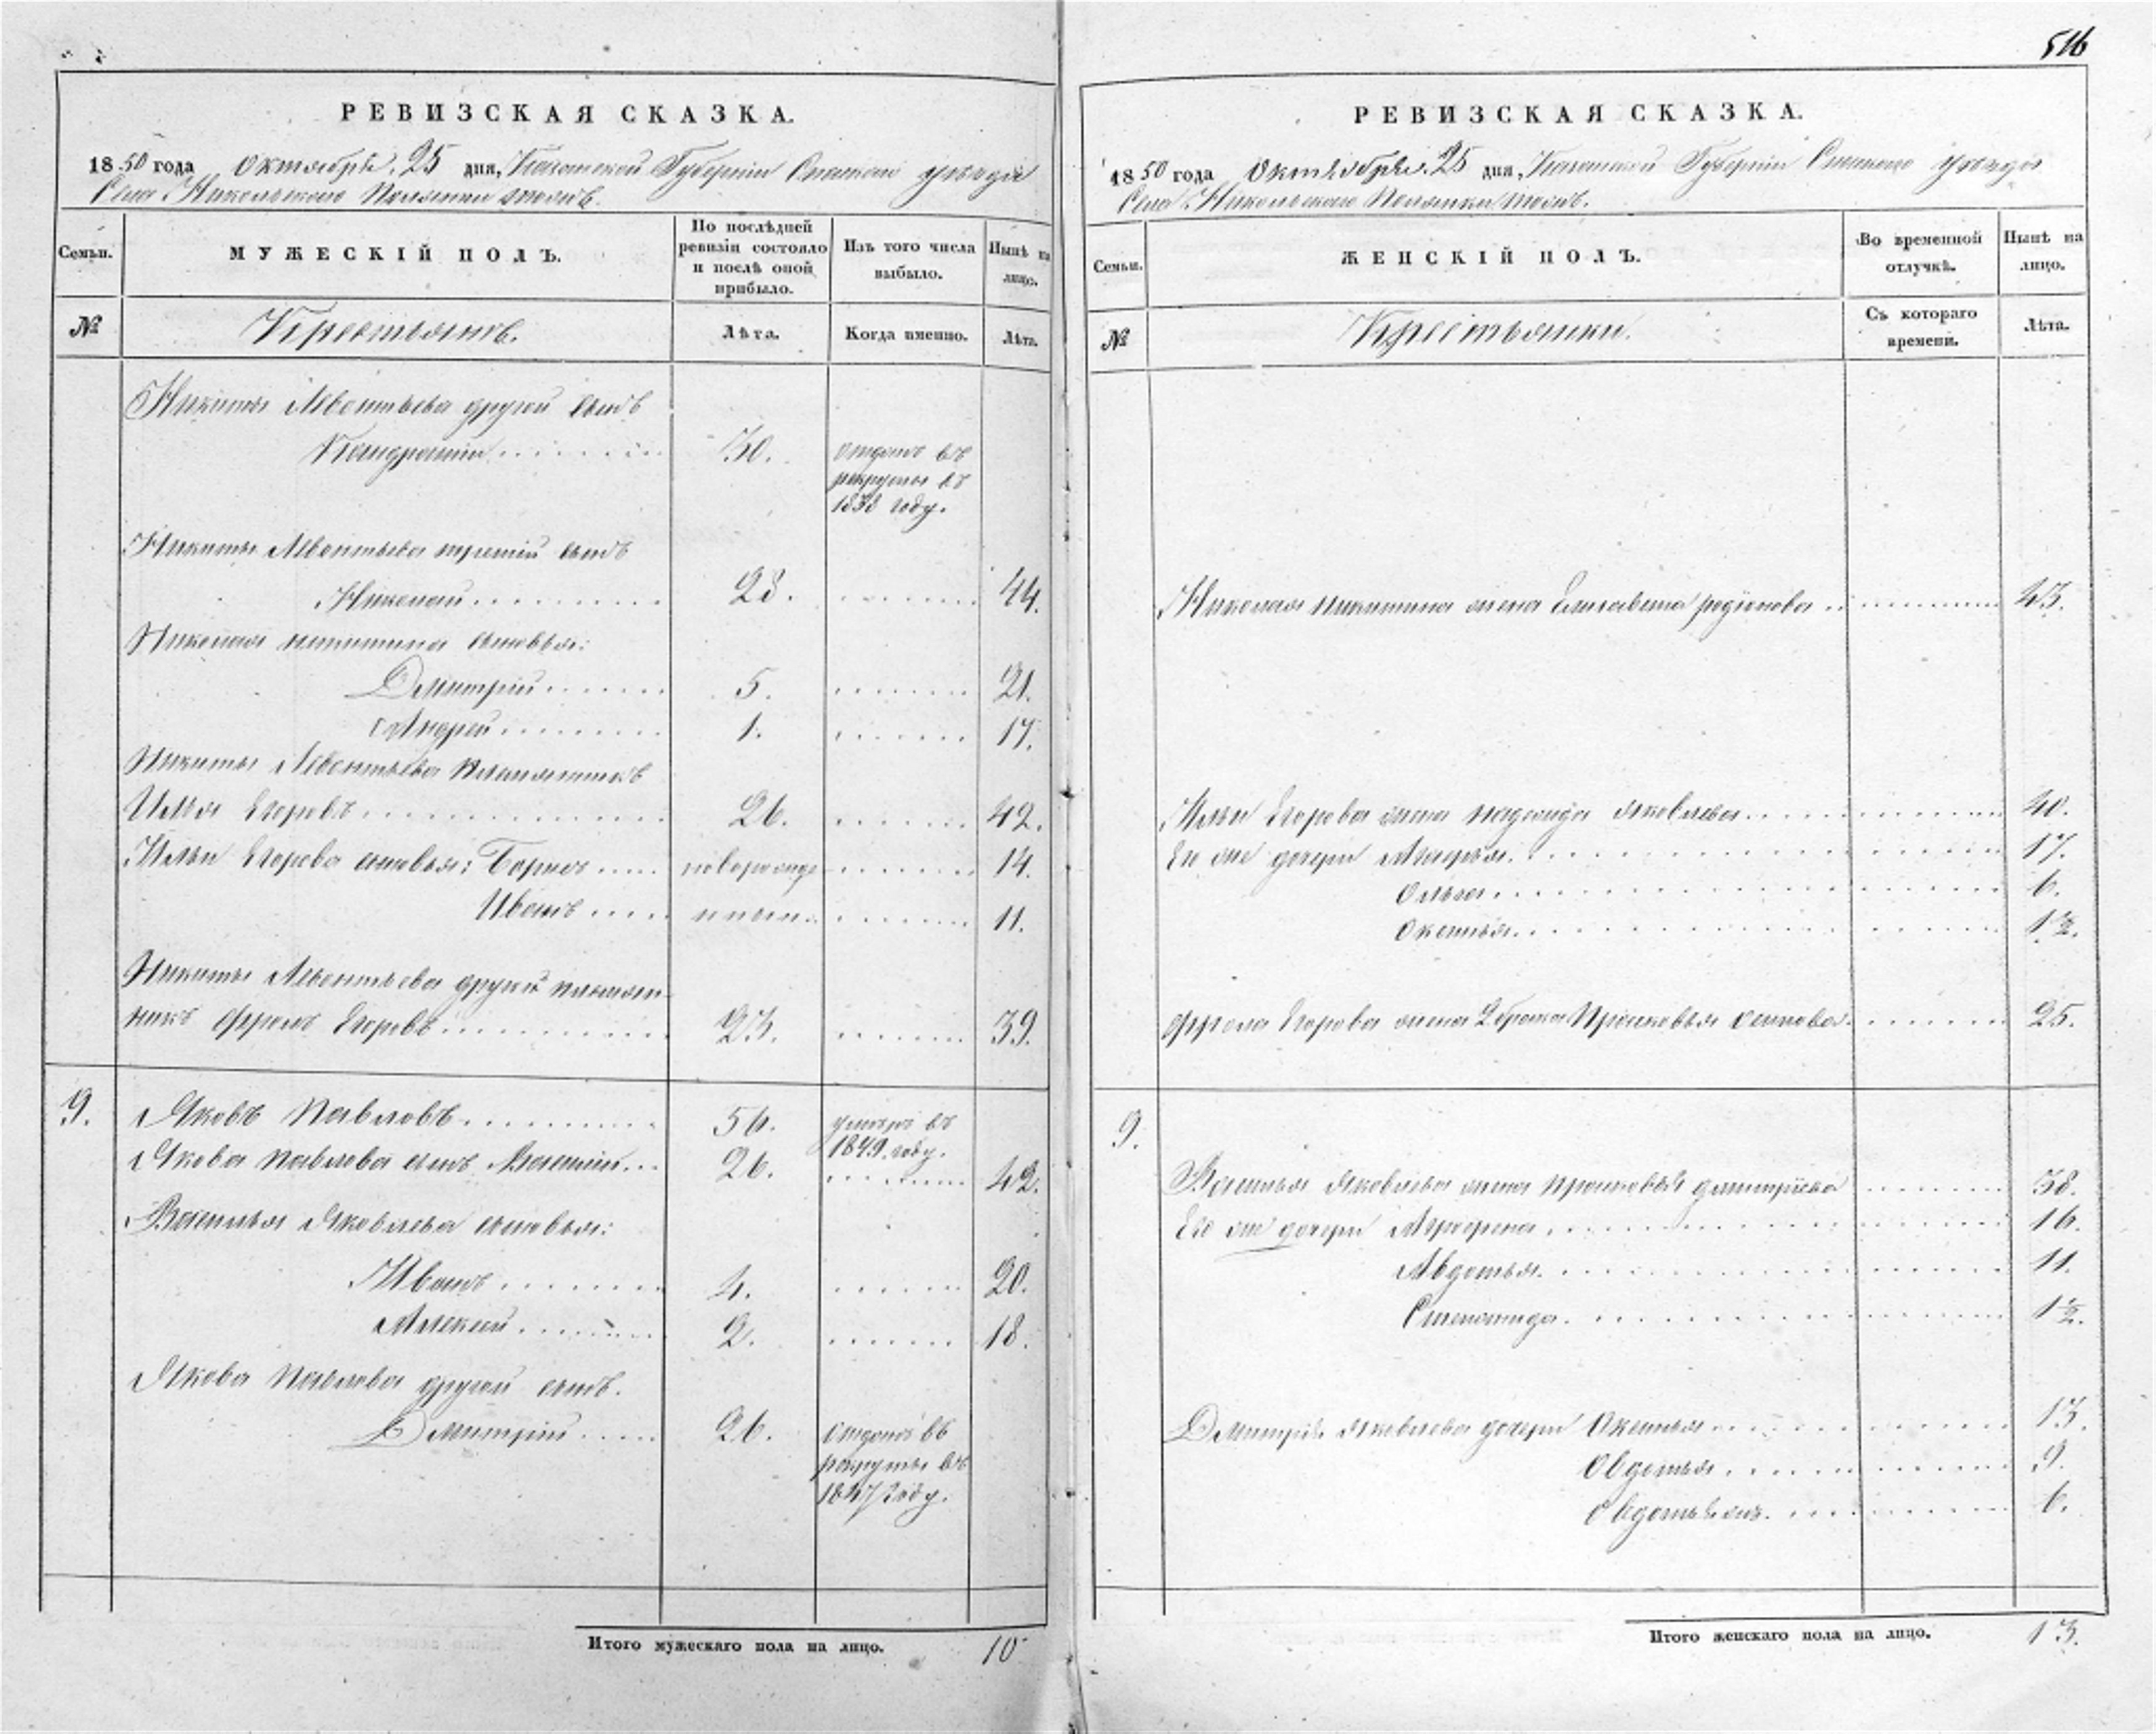 РЕВИЗСКАЯ СКАЗКА.
1850 года Октября 25 дня, Казанской Губернии Спаскаго уезда
Села Никольского Полянки тожъ.
Семьи. МУЖЕСКІЙ ПОЛЪ. По послѣдней ревизіи состояло и послѣ оной прибыло. Изъ того числа выбыло. Нынѣ на лицо.
№ Крестьянъ. Лѣта. Когда именно. Лѣта.
Никиты Левонтьева другой сынъ
Кандратий 30. отданъ въ
рекруты въ
1838 году.
Никиты Левонтьева третий сынъ
Николай 28. 44.
Николая никитина сыновья:
Дмитрий 5. 21.
Андрей 1. 17.
Никиты Левонтьева племянникъ
Илья Егоровъ 26. 42.
Ильи Егорова сыновья: Борисъ новорожд 14.
Иванъ 11.
Никиты Левонтьева другой племян
никъ Фролъ Егоровъ 23. 39.
9. Яковъ Павловъ 56. умеръ въ
1849 году.
Якова павлова сынъ Василий 26. 42.
Василья Яковлева сыновья:
Иванъ 4. 20.
Алексей 2. 18.
Якова Павлова другой сынъ.
Дмитрий 26. отданъ въ
рекруты въ
1847 году.
Итого мужескаго пола на лицо. 10
516
РЕВИЗСКАЯ СКАЗКА.
1850 года Октября 25 дня, Казанской Губернии Спаскаго уезда
Села Никольского Полянки тожъ.
Семьи. ЖЕНСКІЙ ПОЛЪ. Во временной отлучкѣ. Нынѣ на лицо.
№ Крестьянки. Съ котораго времени. Лѣта.
Николая никитина жена Елизавета родионова 43.
Ильи Егорова жена яковлева 40.
Его же дочери Марья 17.
Ольга 6.
Оксинья 1½.
Фрола Егорова жена 2 брака Прасковья осипова 25.
9.
Василья яковлева жена прасковья дмитриева 38.
Его же дочери 16.
Авдотья 11.
Степанида 1½.
Дмитрия яковлева дочери Оксинья 13.
Овдотья 9.
6.
Итого женскаго пола на лицо. 13.